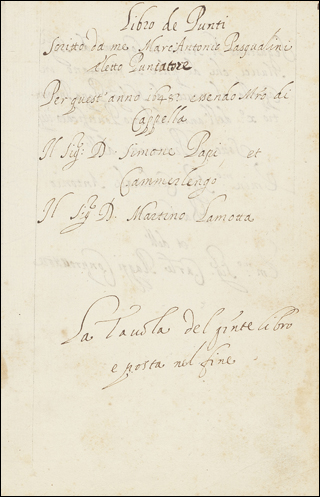 Libro de Punti
Scritto da me Marc Antonio Pasqualini
eletto Puntatore
Per quest' anno 1648: essendo Mro di
Cappella
Il Sigr: D. Simone Papi et
Cammerlengo
Il Sigr D. Martino Lamotta
La Tavola del pnte libro
e posta nel fine